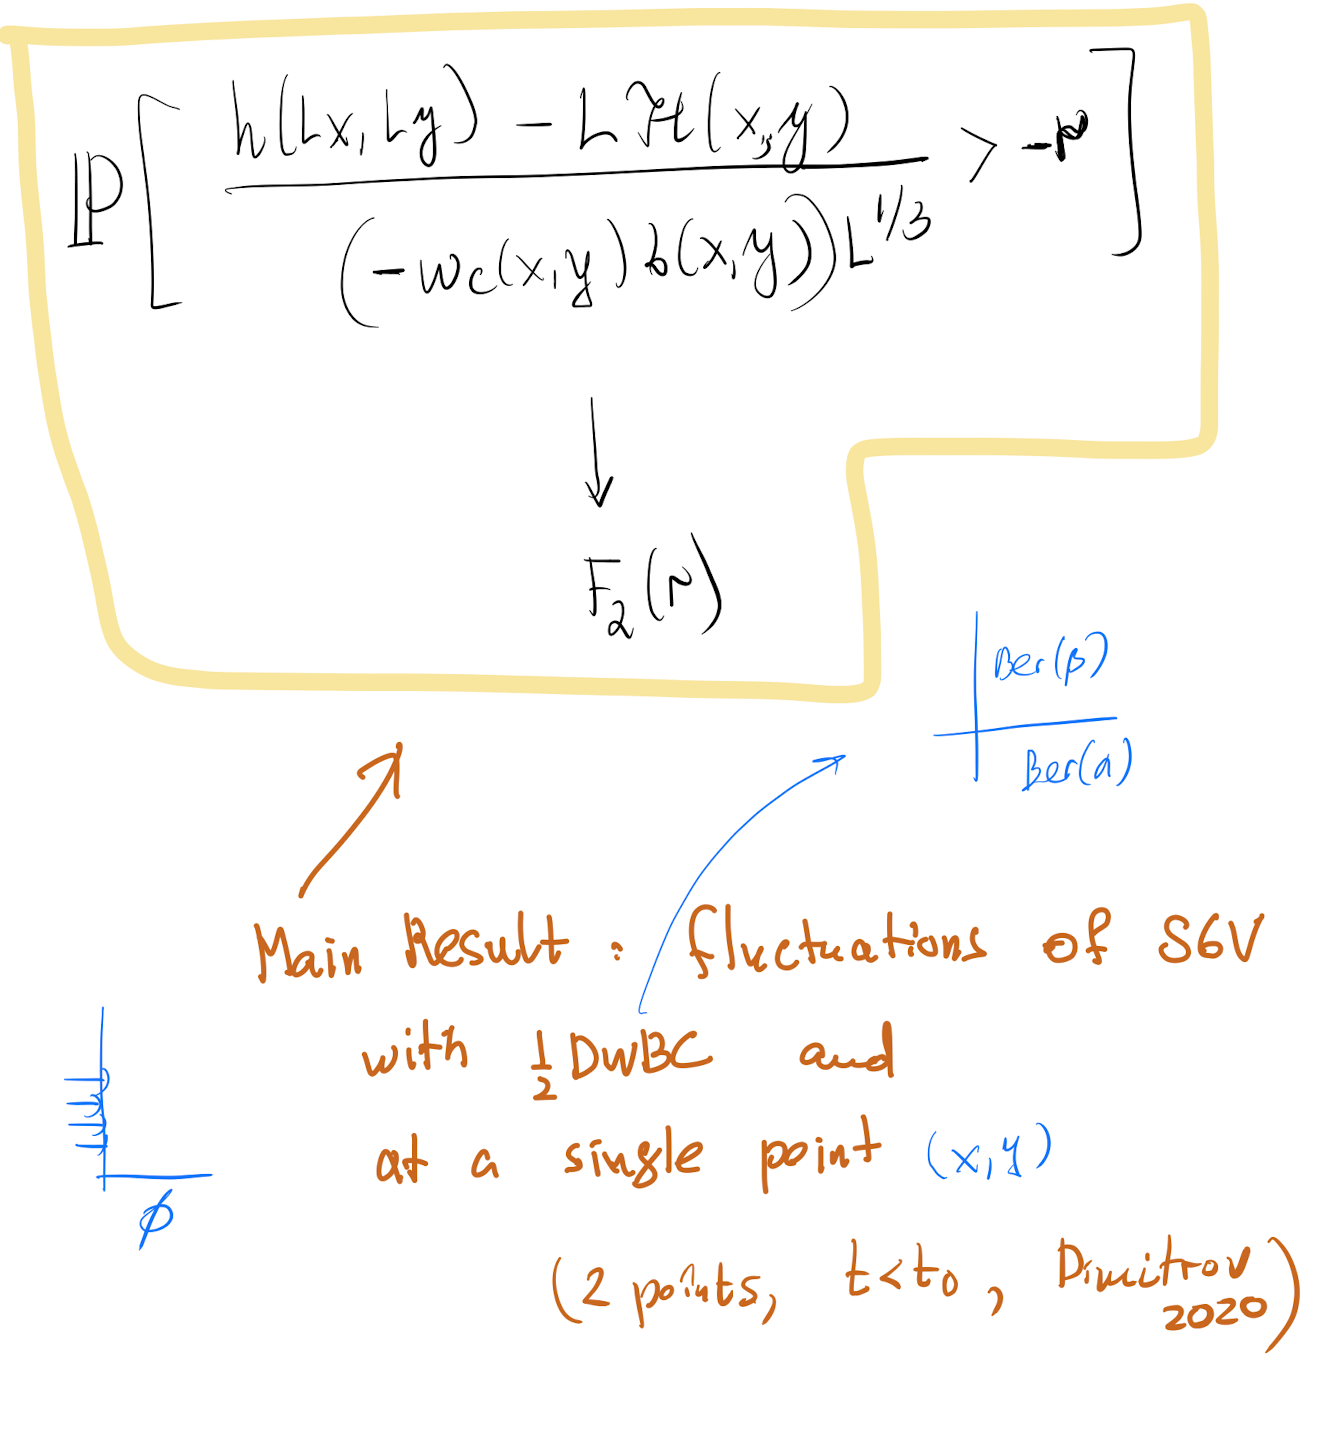 ℙ[ (h(Lx, Ly) - L ℋ(x, y)) / ((-w_c(x, y) b(x, y)) L^{1/3}) > -r ]
↓
F_2(r)
Ber(β)
Ber(a)
Main Result: fluctuations of S6V
with 1/2 DWBC and
at a single point (x, y)
∅
(2 points, t < t_0, Dimitrov 2020)